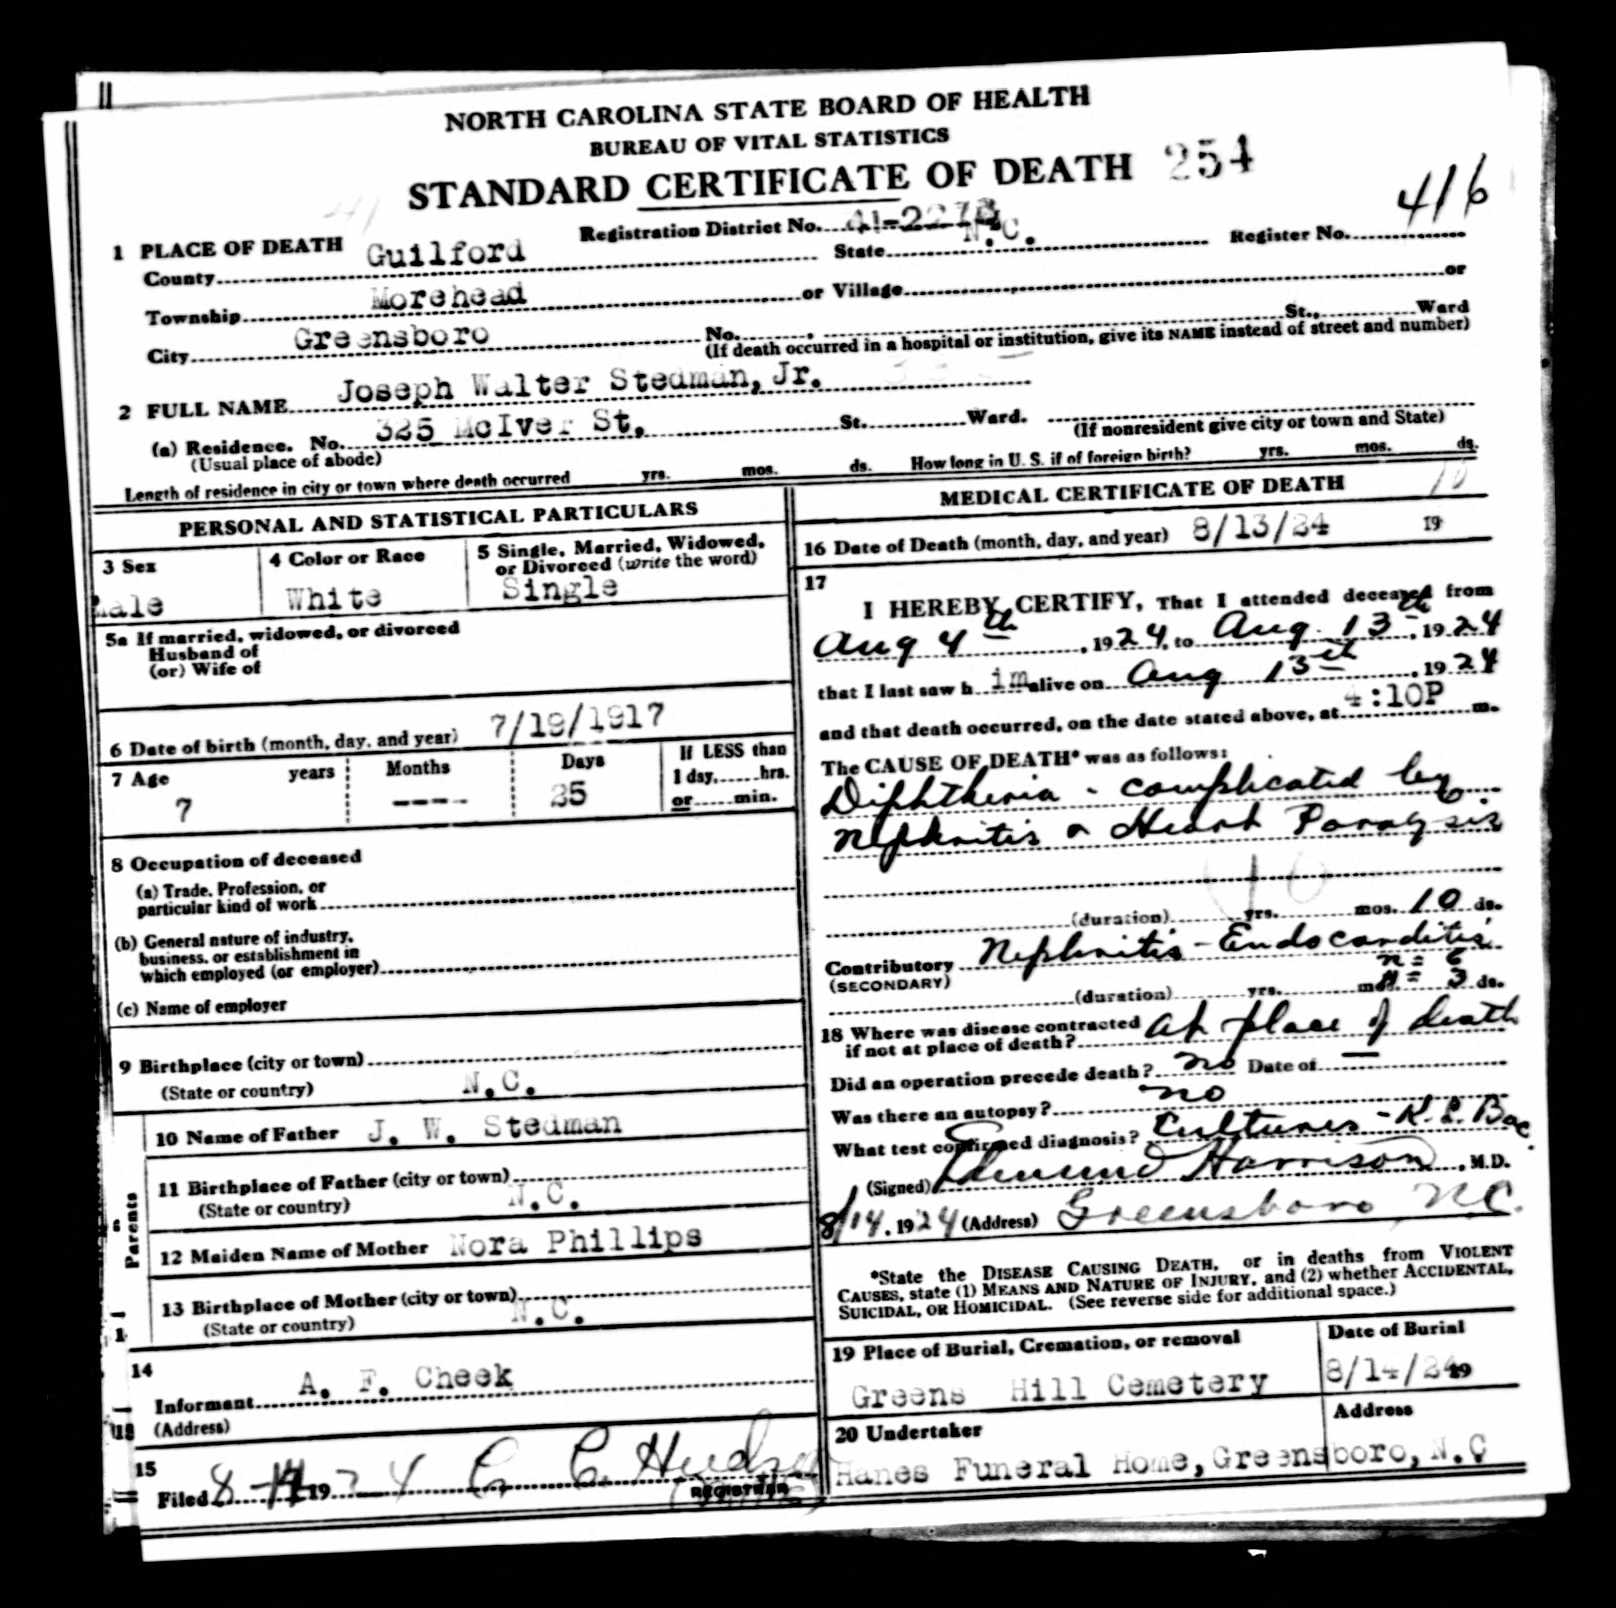 NORTH CAROLINA STATE BOARD OF HEALTH
BUREAU OF VITAL STATISTICS
STANDARD CERTIFICATE OF DEATH 254
416
Registration District No. Register No.
1 PLACE OF DEATH
County Guilford State N.C.
Township Morehead or Village or
City Greensboro No. , St., Ward
(If death occurred in a hospital or institution, give its NAME instead of street and number)
2 FULL NAME Joseph Walter Stedman, Jr.
(a) Residence. No. 325 McIver St. St. Ward.
(Usual place of abode) (If nonresident give city or town and State)
Length of residence in city or town where death occurred yrs. mos. ds. How long in U. S. if of foreign birth? yrs. mos. ds.
PERSONAL AND STATISTICAL PARTICULARS
3 Sex 4 Color or Race 5 Single, Married, Widowed,
or Divorced (write the word)
Male White Single
5a If married, widowed, or divorced
Husband of
(or) Wife of
6 Date of birth (month, day, and year) 7/19/1917
7 Age years Months Days If LESS than
1 day, hrs.
7 ---- 25 or min.
8 Occupation of deceased
(a) Trade, Profession, or
particular kind of work
(b) General nature of industry,
business, or establishment in
which employed (or employer)
(c) Name of employer
9 Birthplace (city or town)
(State or country) N.C.
Parents
10 Name of Father J. W. Stedman
11 Birthplace of Father (city or town)
(State or country) N.C.
12 Maiden Name of Mother Nora Phillips
13 Birthplace of Mother (city or town)
(State or country) N.C.
14
Informant A. F. Cheek
(Address)
15
Filed 8-14 1924 C. C. Hudson
REGISTRAR
MEDICAL CERTIFICATE OF DEATH
10
16 Date of Death (month, day, and year) 8/13/24 19
17
I HEREBY CERTIFY, That I attended deceased from
Aug 4th, 1924, to Aug. 13th, 1924
that I last saw h im alive on Aug 13th, 1924
and that death occurred, on the date stated above, at 4:10P m.
The CAUSE OF DEATH* was as follows:
Diphtheria - complicated by
Nephritis & Heart Paralysis
10
(duration) yrs. mos. 10 ds.
Contributory Nephritis - Endocarditis
(SECONDARY) n = 6
(duration) yrs. mos. = 3 ds.
18 Where was disease contracted
if not at place of death? At place of death
Did an operation precede death? no Date of —
Was there an autopsy? no
What test confirmed diagnosis? Cultures - K. L. Bac.
(Signed) Edmund Harrison, M.D.
8/14, 1924 (Address) Greensboro, N.C.
*State the DISEASE CAUSING DEATH, or in deaths from VIOLENT
CAUSES, state (1) MEANS AND NATURE OF INJURY, and (2) whether ACCIDENTAL,
SUICIDAL, OR HOMICIDAL. (See reverse side for additional space.)
19 Place of Burial, Cremation, or removal Date of Burial
Greens Hill Cemetery 8/14/24 19
20 Undertaker Address
Hanes Funeral Home, Greensboro, N.C